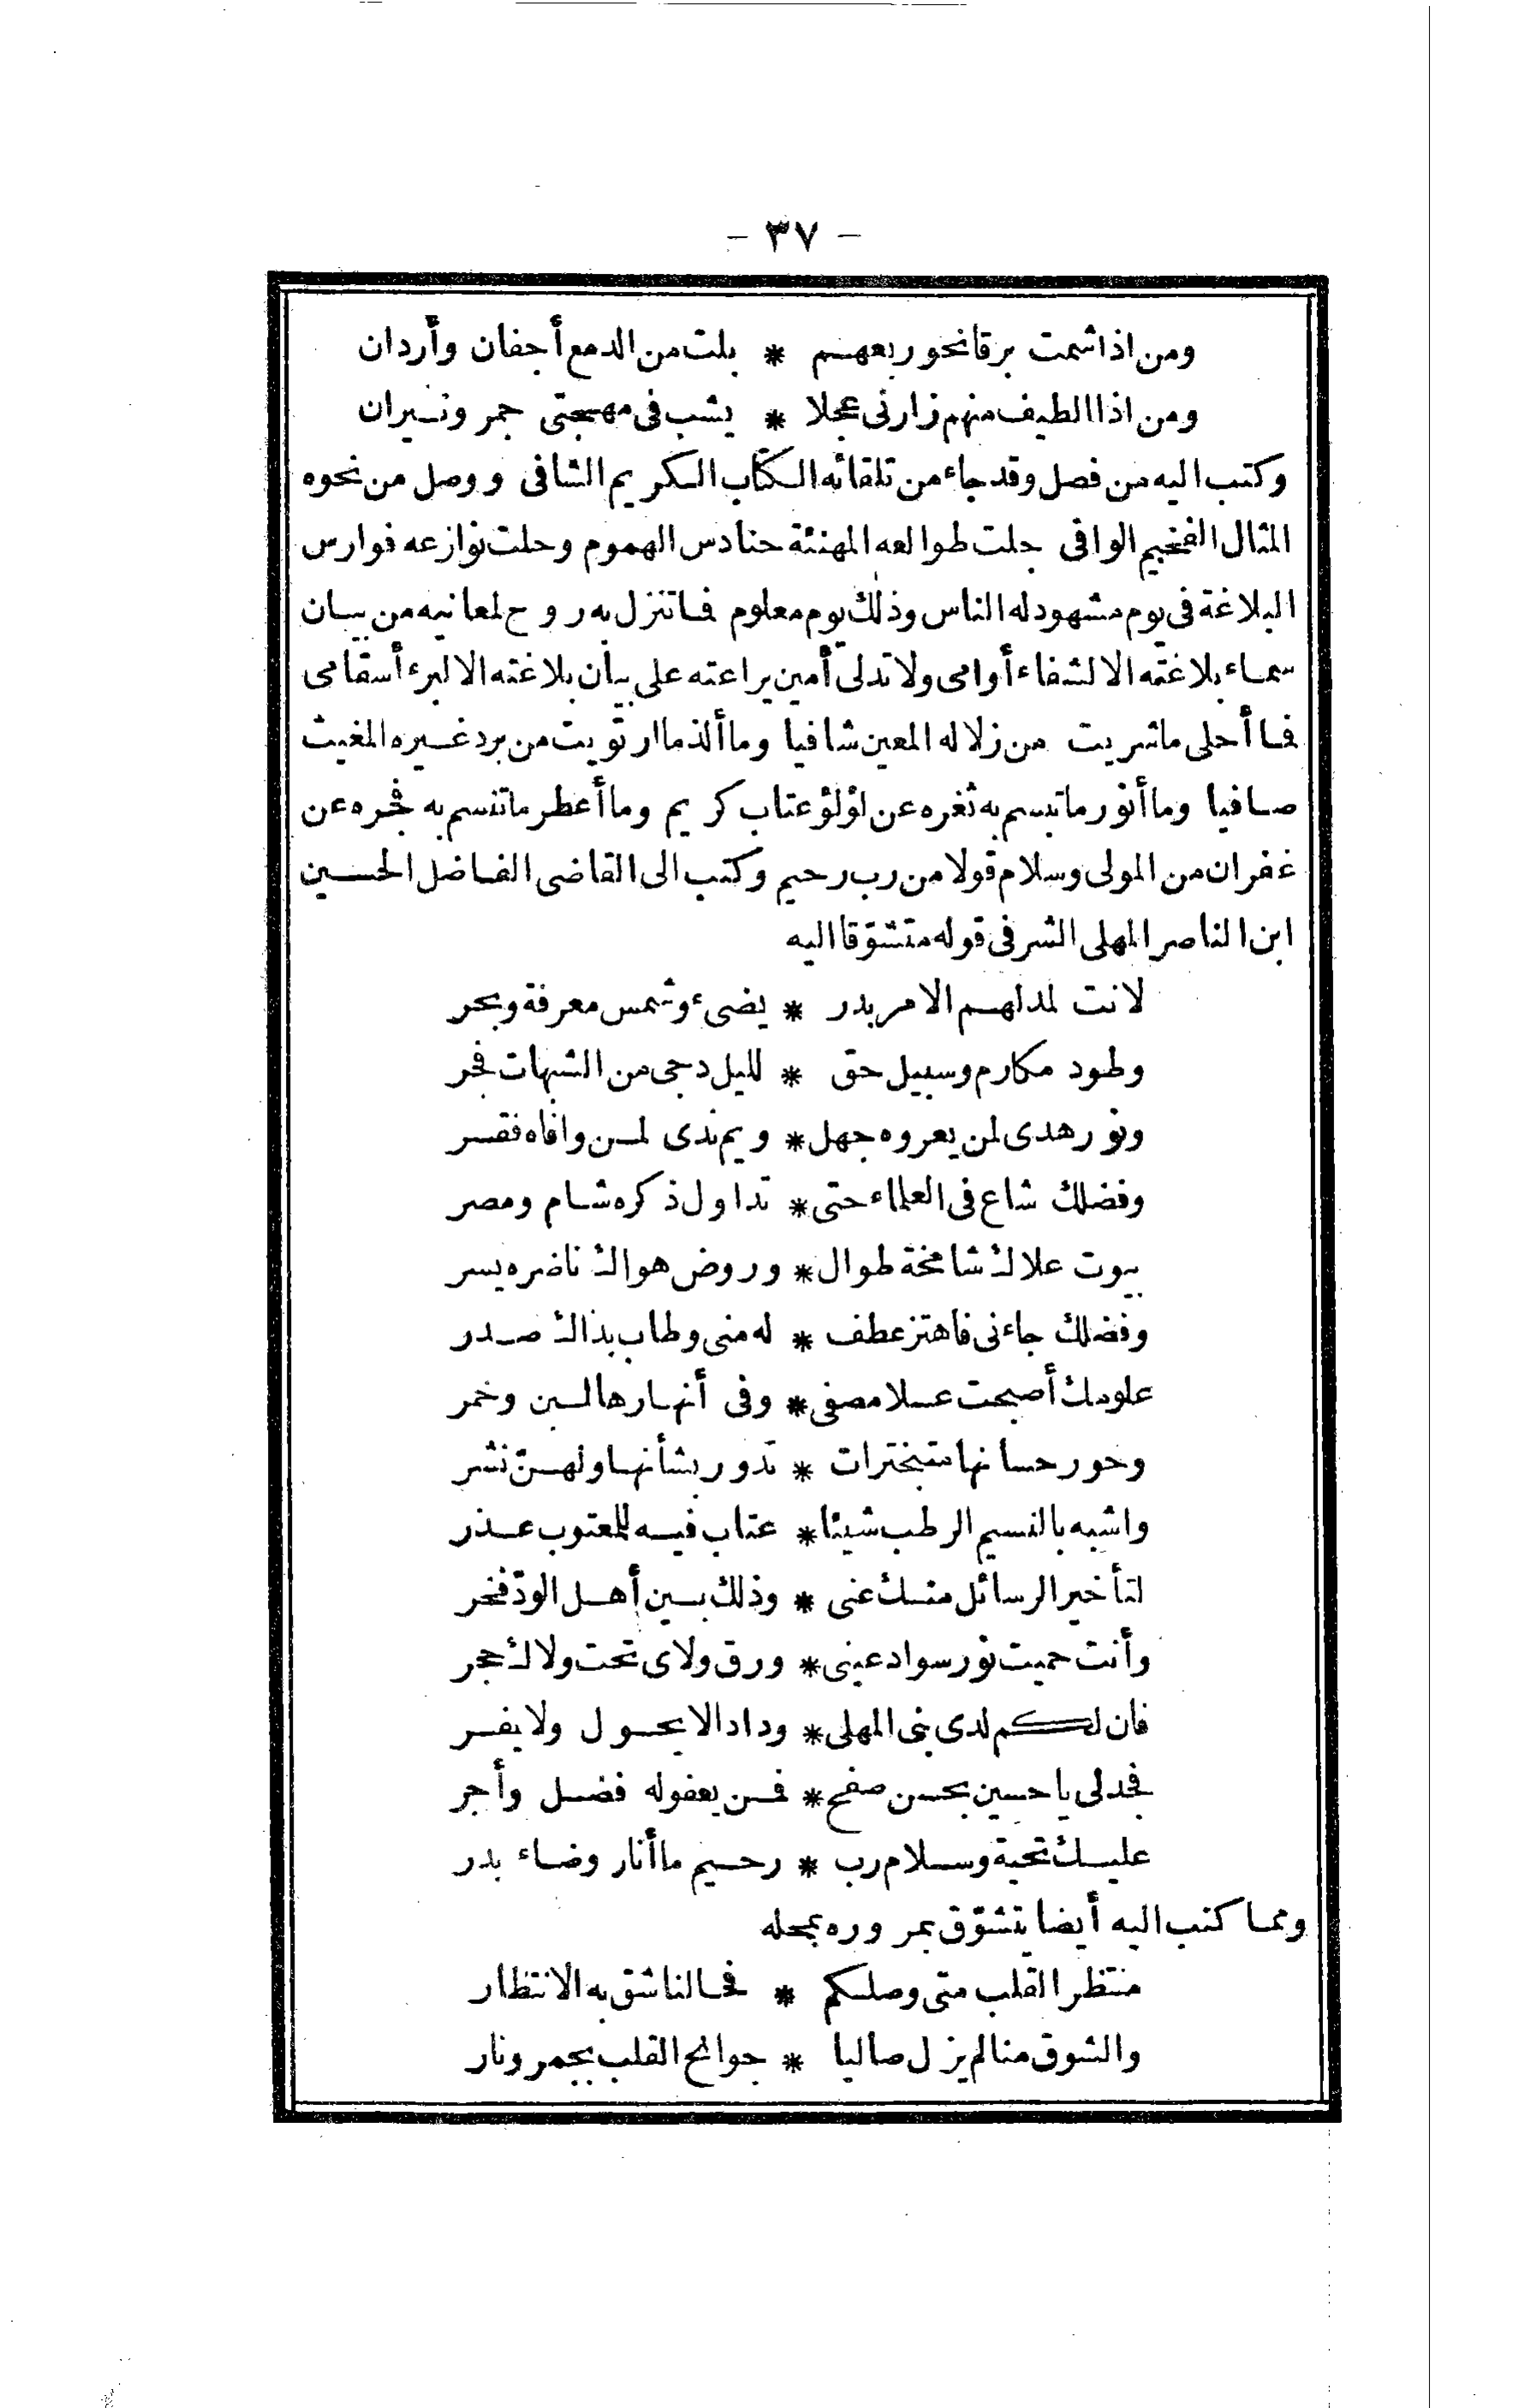 - ٣٧ -
ومن اذا شمت برقا نحو ربعهم * بلت من الدمع أجفان وأردان
ومن اذا الطيف منهم زارنى عجلا * يشب فى مهجتى جمر ونيران
وكتب اليه من فصل وقد جاء من تلقائه الكتاب الكريم الشافى ووصل من نحوه
المثال الفخيم الوافى جلت طوالعه المهنئة حنادس الهموم وحلت نوازعه فوارس
البلاغة فى يوم مشهود له الناس وذلك يوم معلوم فما تنزل به روح لمعانيه من بيان
سماء بلاغته الا لشفاء أوامى ولا تدلى أمين يراعته على بيان بلاغته الا لبرء أسقامى
فما أحلى ما شربت من زلاله المعين شافيا وما ألذ ما ارتويت من برد غيره المغيث
صافيا وما أنور ما تبسم به ثغره عن لؤلؤ عتاب كريم وما أعطر ما تنسم به فجره عن
غفران من المولى وسلام قولا من رب رحيم وكتب الى القاضى الفاضل الحسين
ابن الناصر المهلى الشرفى قوله متشوّقا اليه
لانت لمدلهم الامر بدر * يضىء وشمس معرفة وبحر
وطود مكارم وسبيل حق * لليل دجى من الشبهات فجر
ونور هدى لمن يعروه جهل * ويم ندى لمن وافاه فقر
وفضلك شاع فى العلماء حتى * تداول ذكره شام ومصر
بيوت علاك شامخة طوال * وروض هواك ناضره يسر
وفضلك جاءنى فاهتز عطف * له منى وطاب بذاك صدر
علومك أصبحت عسلا مصفى * وفى أنهارها لبن وخمر
وحور حسانها متبخترات * تدور بشأنها ولهنّ نشر
واشبه بالنسيم الرطب شيئا * عتاب فيه للمعتوب عذر
لتأخير الرسائل منك عنى * وذلك بين أهل الودّ فخر
وأنت حميت نور سواد عينى * ورق ولاى تحت ولاك حجر
فان لكم لدى بنى المهلى * ودادا لا يحول ولا يفر
فجد لى يا حسين بحسن صفح * فمن يعفو له فضل وأجر
عليك تحية وسلام رب * رحيم ما أنار وضاء بدر
ومما كتب اليه أيضا يتشوّق بمروره بمحله
منتظر القلب متى وصلكم * فحالنا شق به الانتظار
والشوق منا لم يزل صاليا * جوانح القلب بجمر ونار